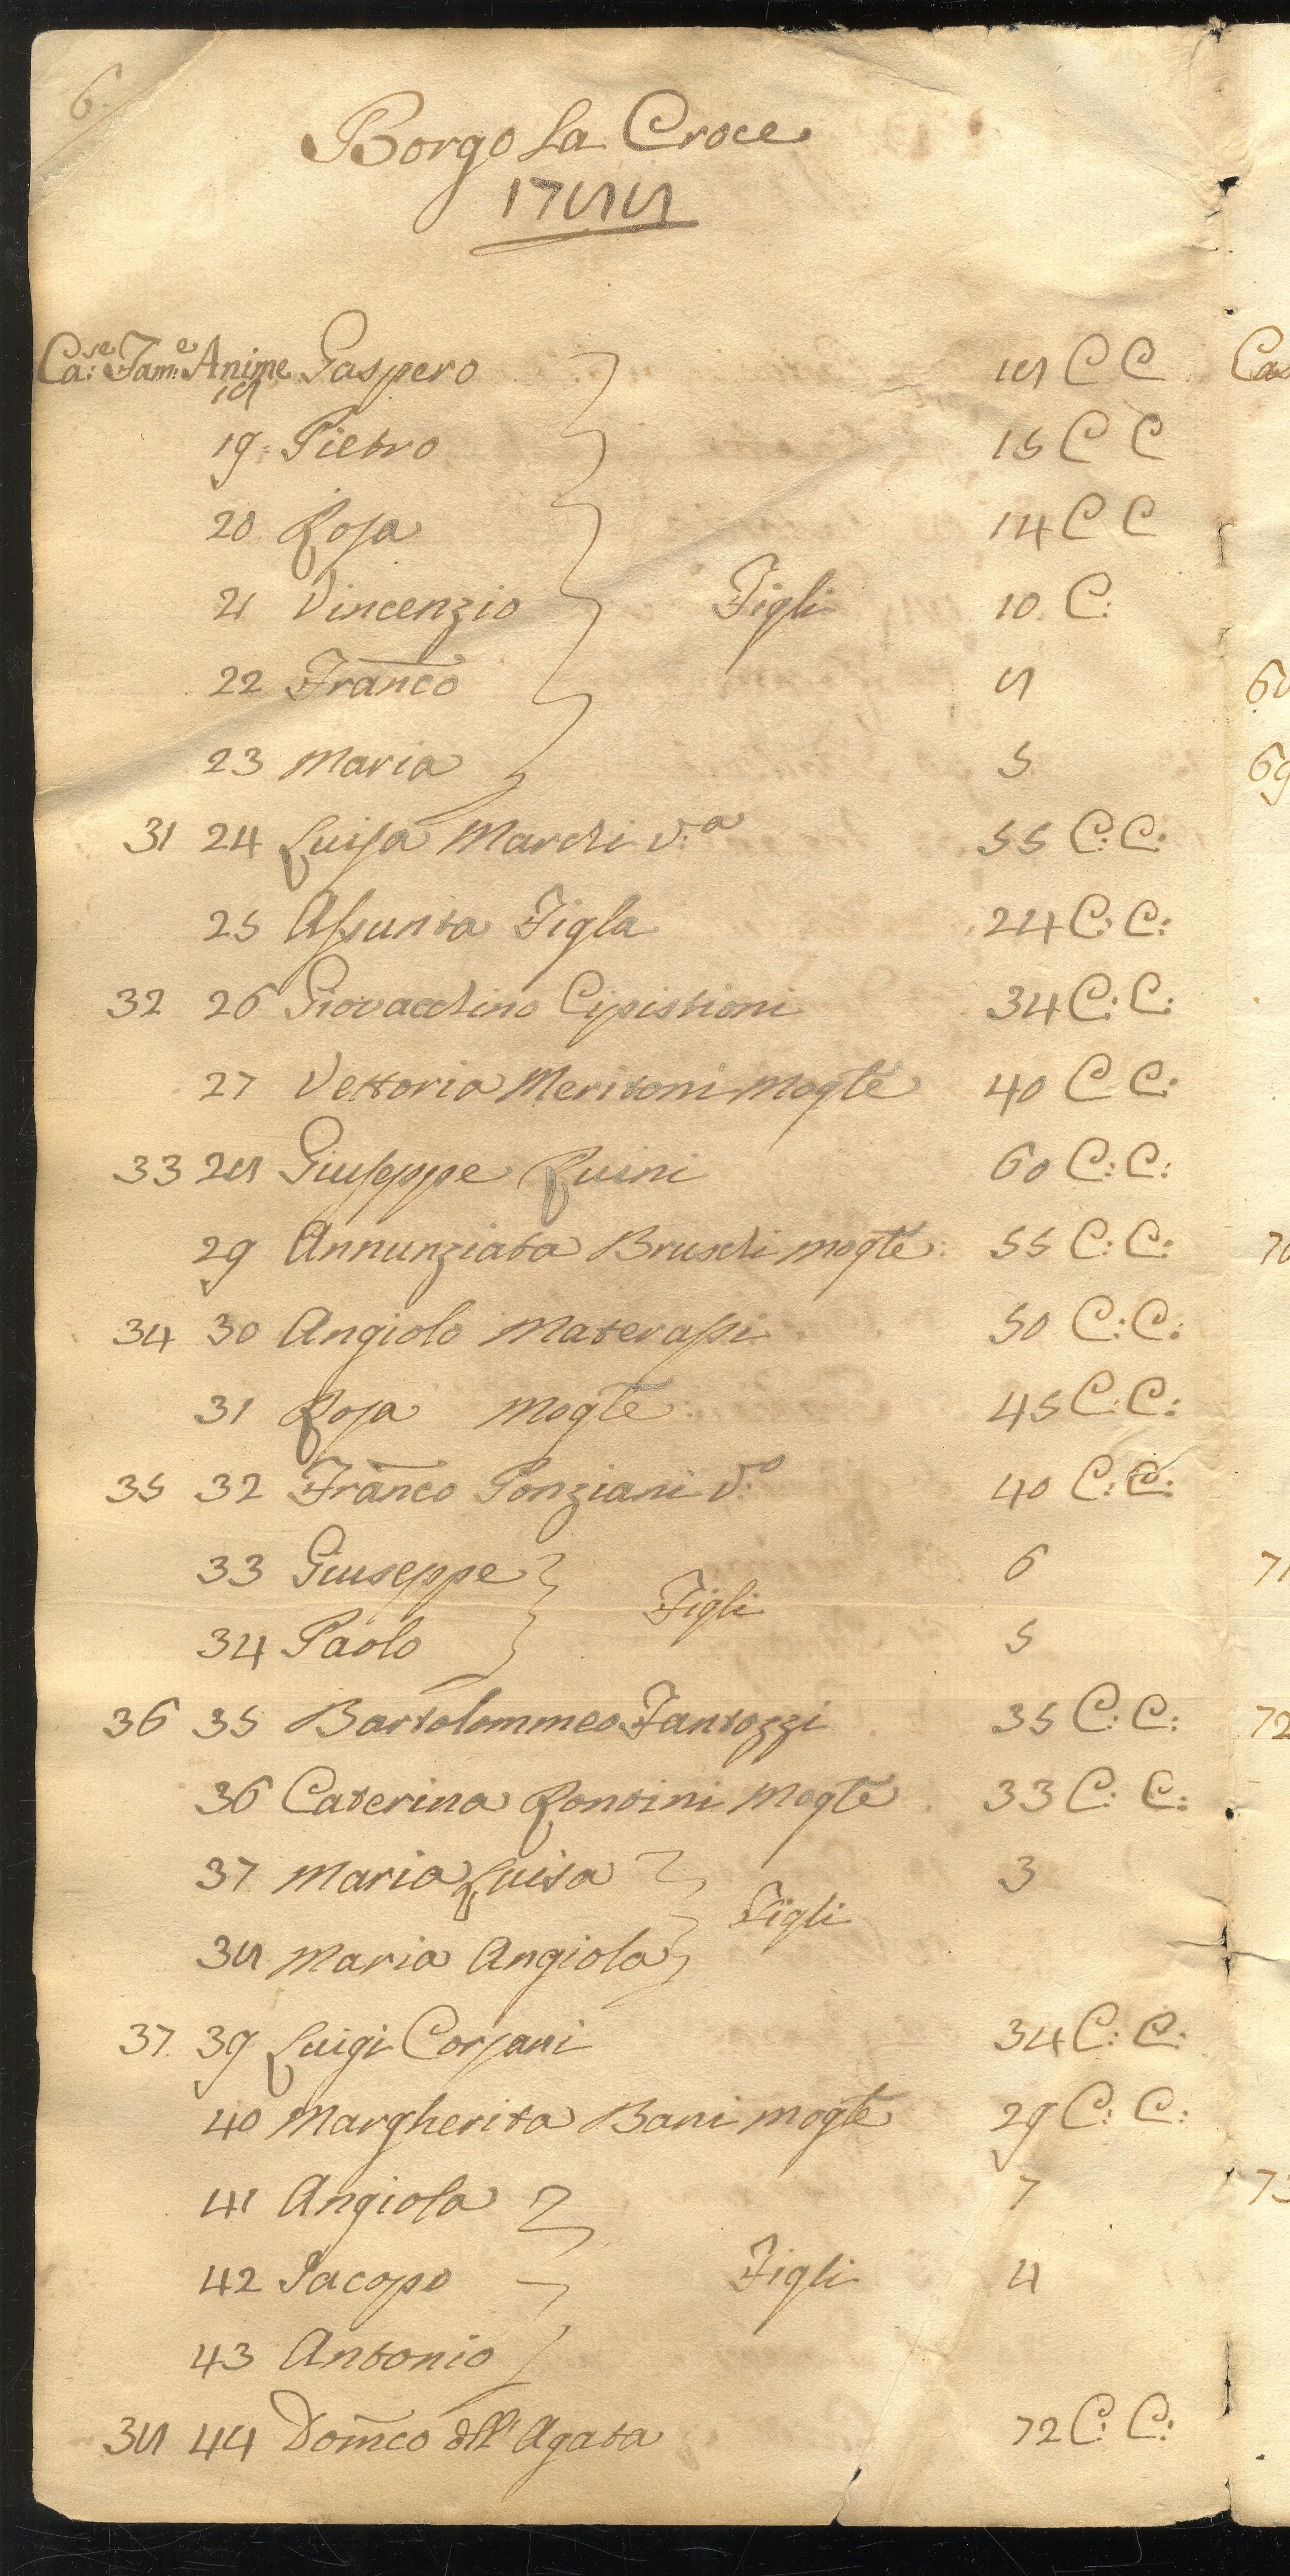 6.
Borgo La Croce
1788
Ca:se Fam:e Anime Gaspero 18 C C
18
19 Pietro 15 C C
20 Rosa 14 C C
21 Vincenzio Figli 10. C:
22 Franco 8
23 Maria 5
31 24 Luisa Marchi v:a 55 C: C:
25 Assunta Figla 24 C: C:
32 26 Giovacchino Cipistioni 34 C: C:
27 Vettoria Meritoni Mogte 40 C C:
33 28 Giuseppe Ruini 60 C: C:
29 Annunziata Bruschi mogte: 55 C: C:
34 30 Angiolo Materassi 50 C: C:
31 Rosa Mogte 45 C: C:
35 32 Franco Ponziani v:o 40 C: C:
33 Giuseppe 6
Figli
34 Paolo 5
36 35 Bartolommeo Fantozzi 35 C: C:
36 Caterina Rontini Mogte 33 C: C:
37 Maria Luisa 3
Figli
38 Maria Angiola
37. 39 Luigi Corsani 34 C: C:
40 Margherita Bani mogte 29 C: C:
41 Angiola 7
42 Jacopo Figli 4
43 Antonio
38 44 Domco dll' Agata 72 C: C: